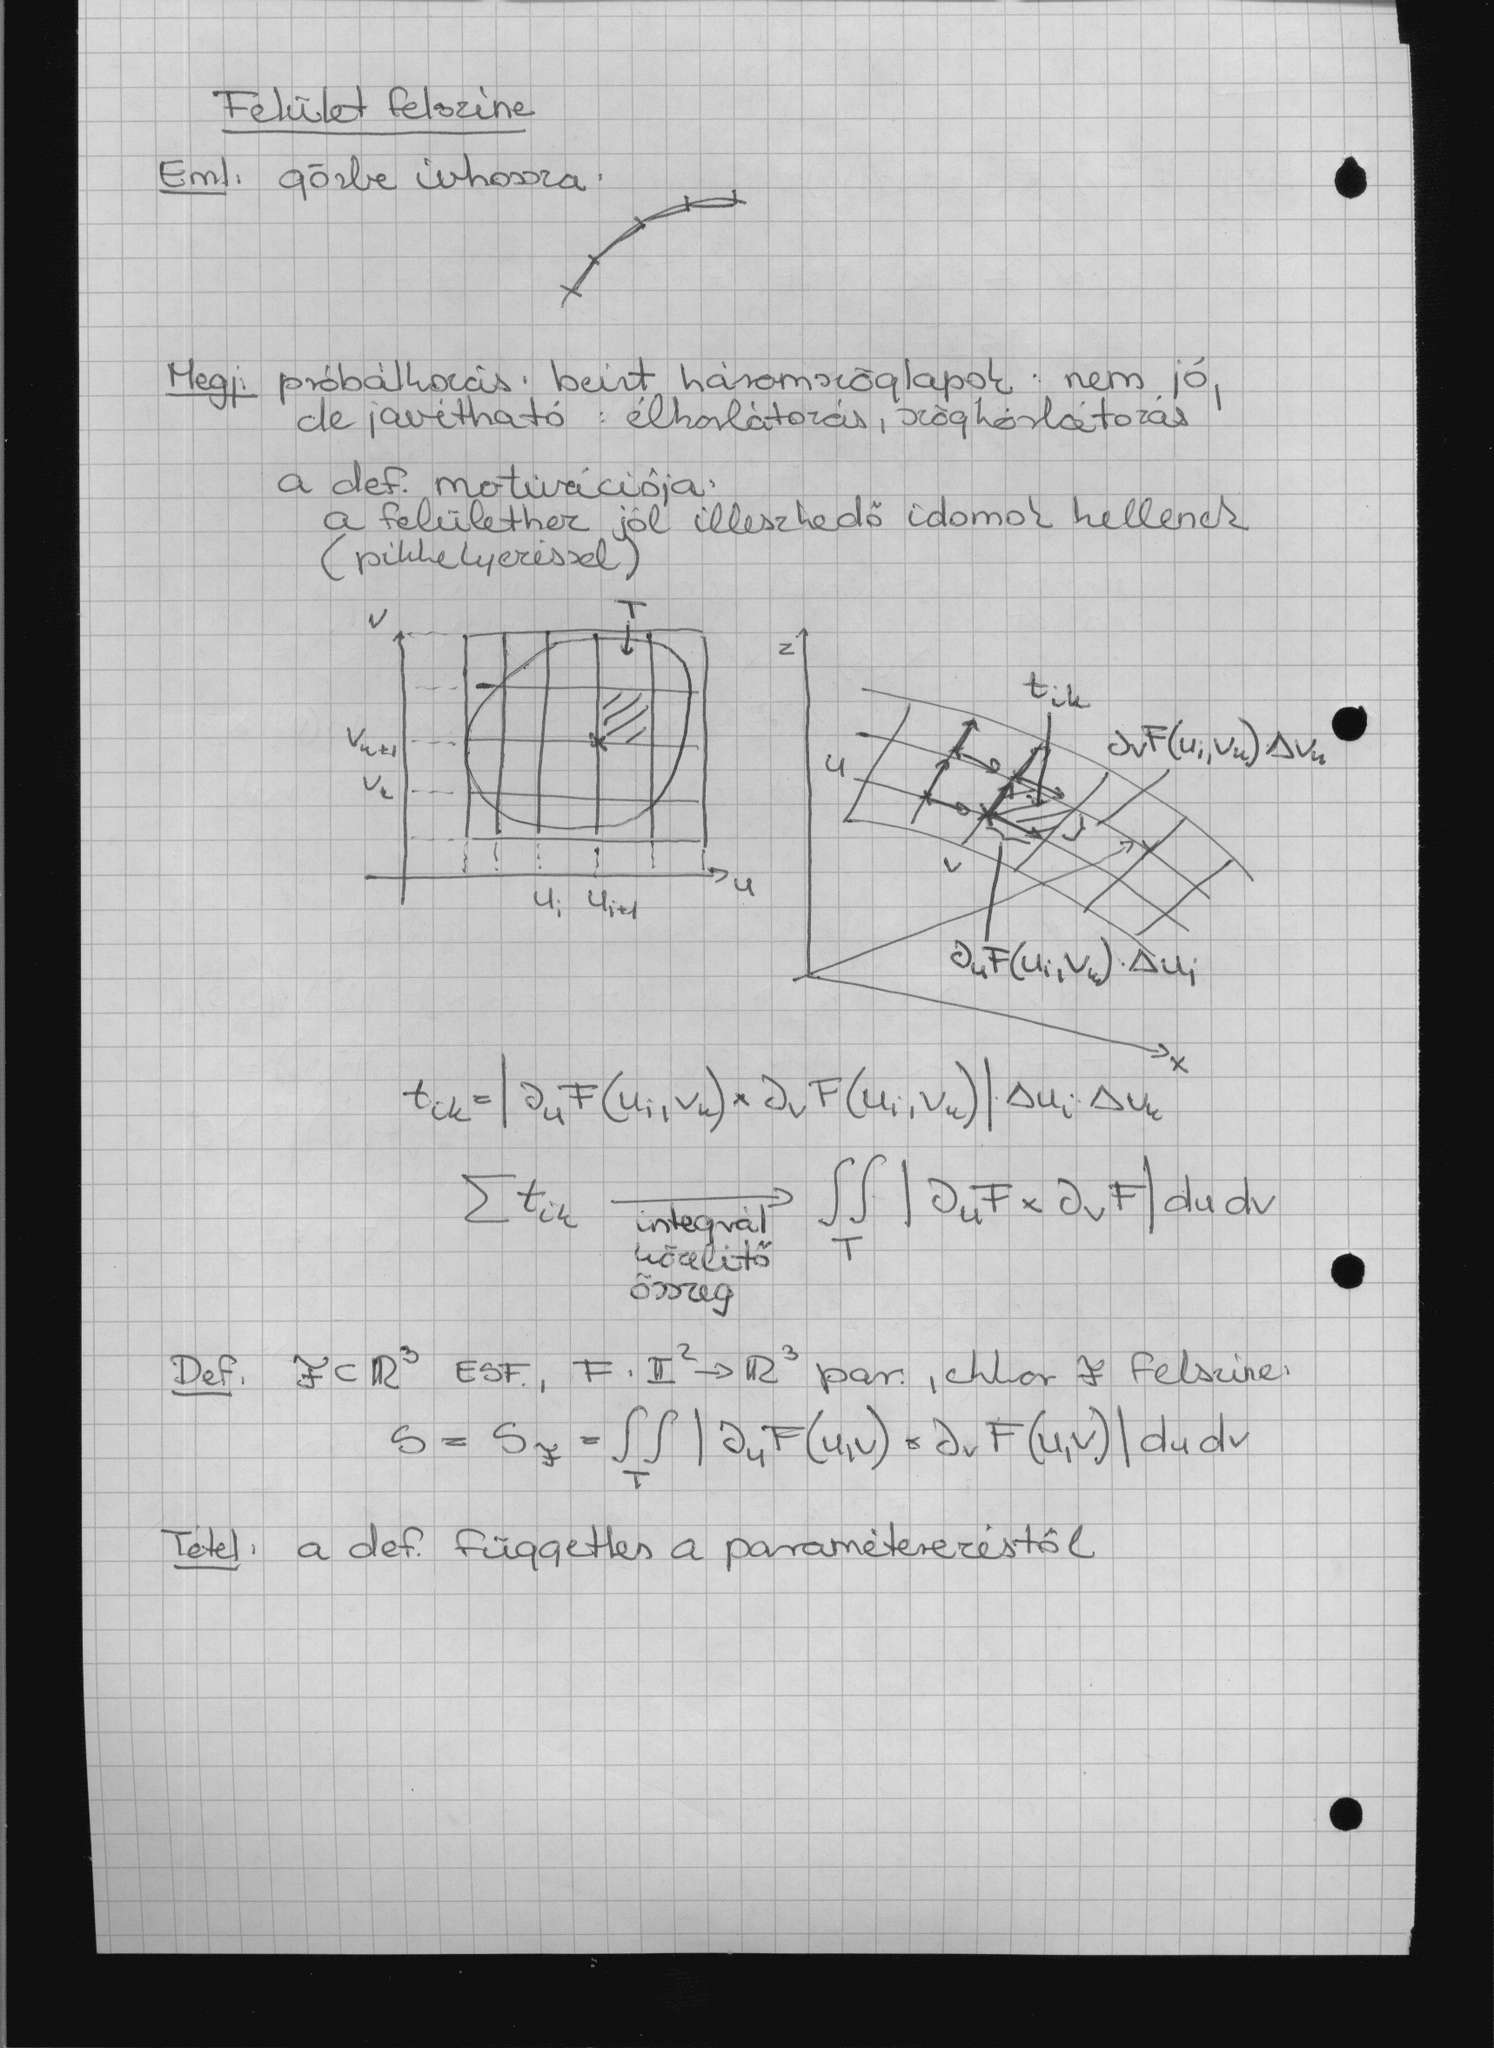 Felület felszíne
Eml: görbe ívhossza:
Megj: próbálkozás: beírt háromszöglapok: nem jó,
de javítható: élkorlátozás, szögkorlátozás
a def. motivációja:
a felülethez jól illeszkedő idomok kellenek
(pikkelyezéssel)
T
v
v_{k+1}
v_k
u_i u_{i+1}
u
z
t_{ik}
∂_vF(u_i,v_k)Δv_k
u
v
y
∂_uF(u_i,v_k)·Δu_i
x
t_{ik} = |∂_uF(u_i,v_k) × ∂_vF(u_i,v_k)|·Δu_i·Δv_k
∑ t_{ik} → ∬_T |∂_uF × ∂_vF| du dv
integrál
közelítő
összeg
Def: ℱ ⊂ ℝ³ ESF., F: 𝕀² → ℝ³ par., ekkor ℱ felszíne:
S = S_ℱ = ∬_T |∂_uF(u,v) × ∂_vF(u,v)| du dv
Tétel: a def. független a paraméterezéstől